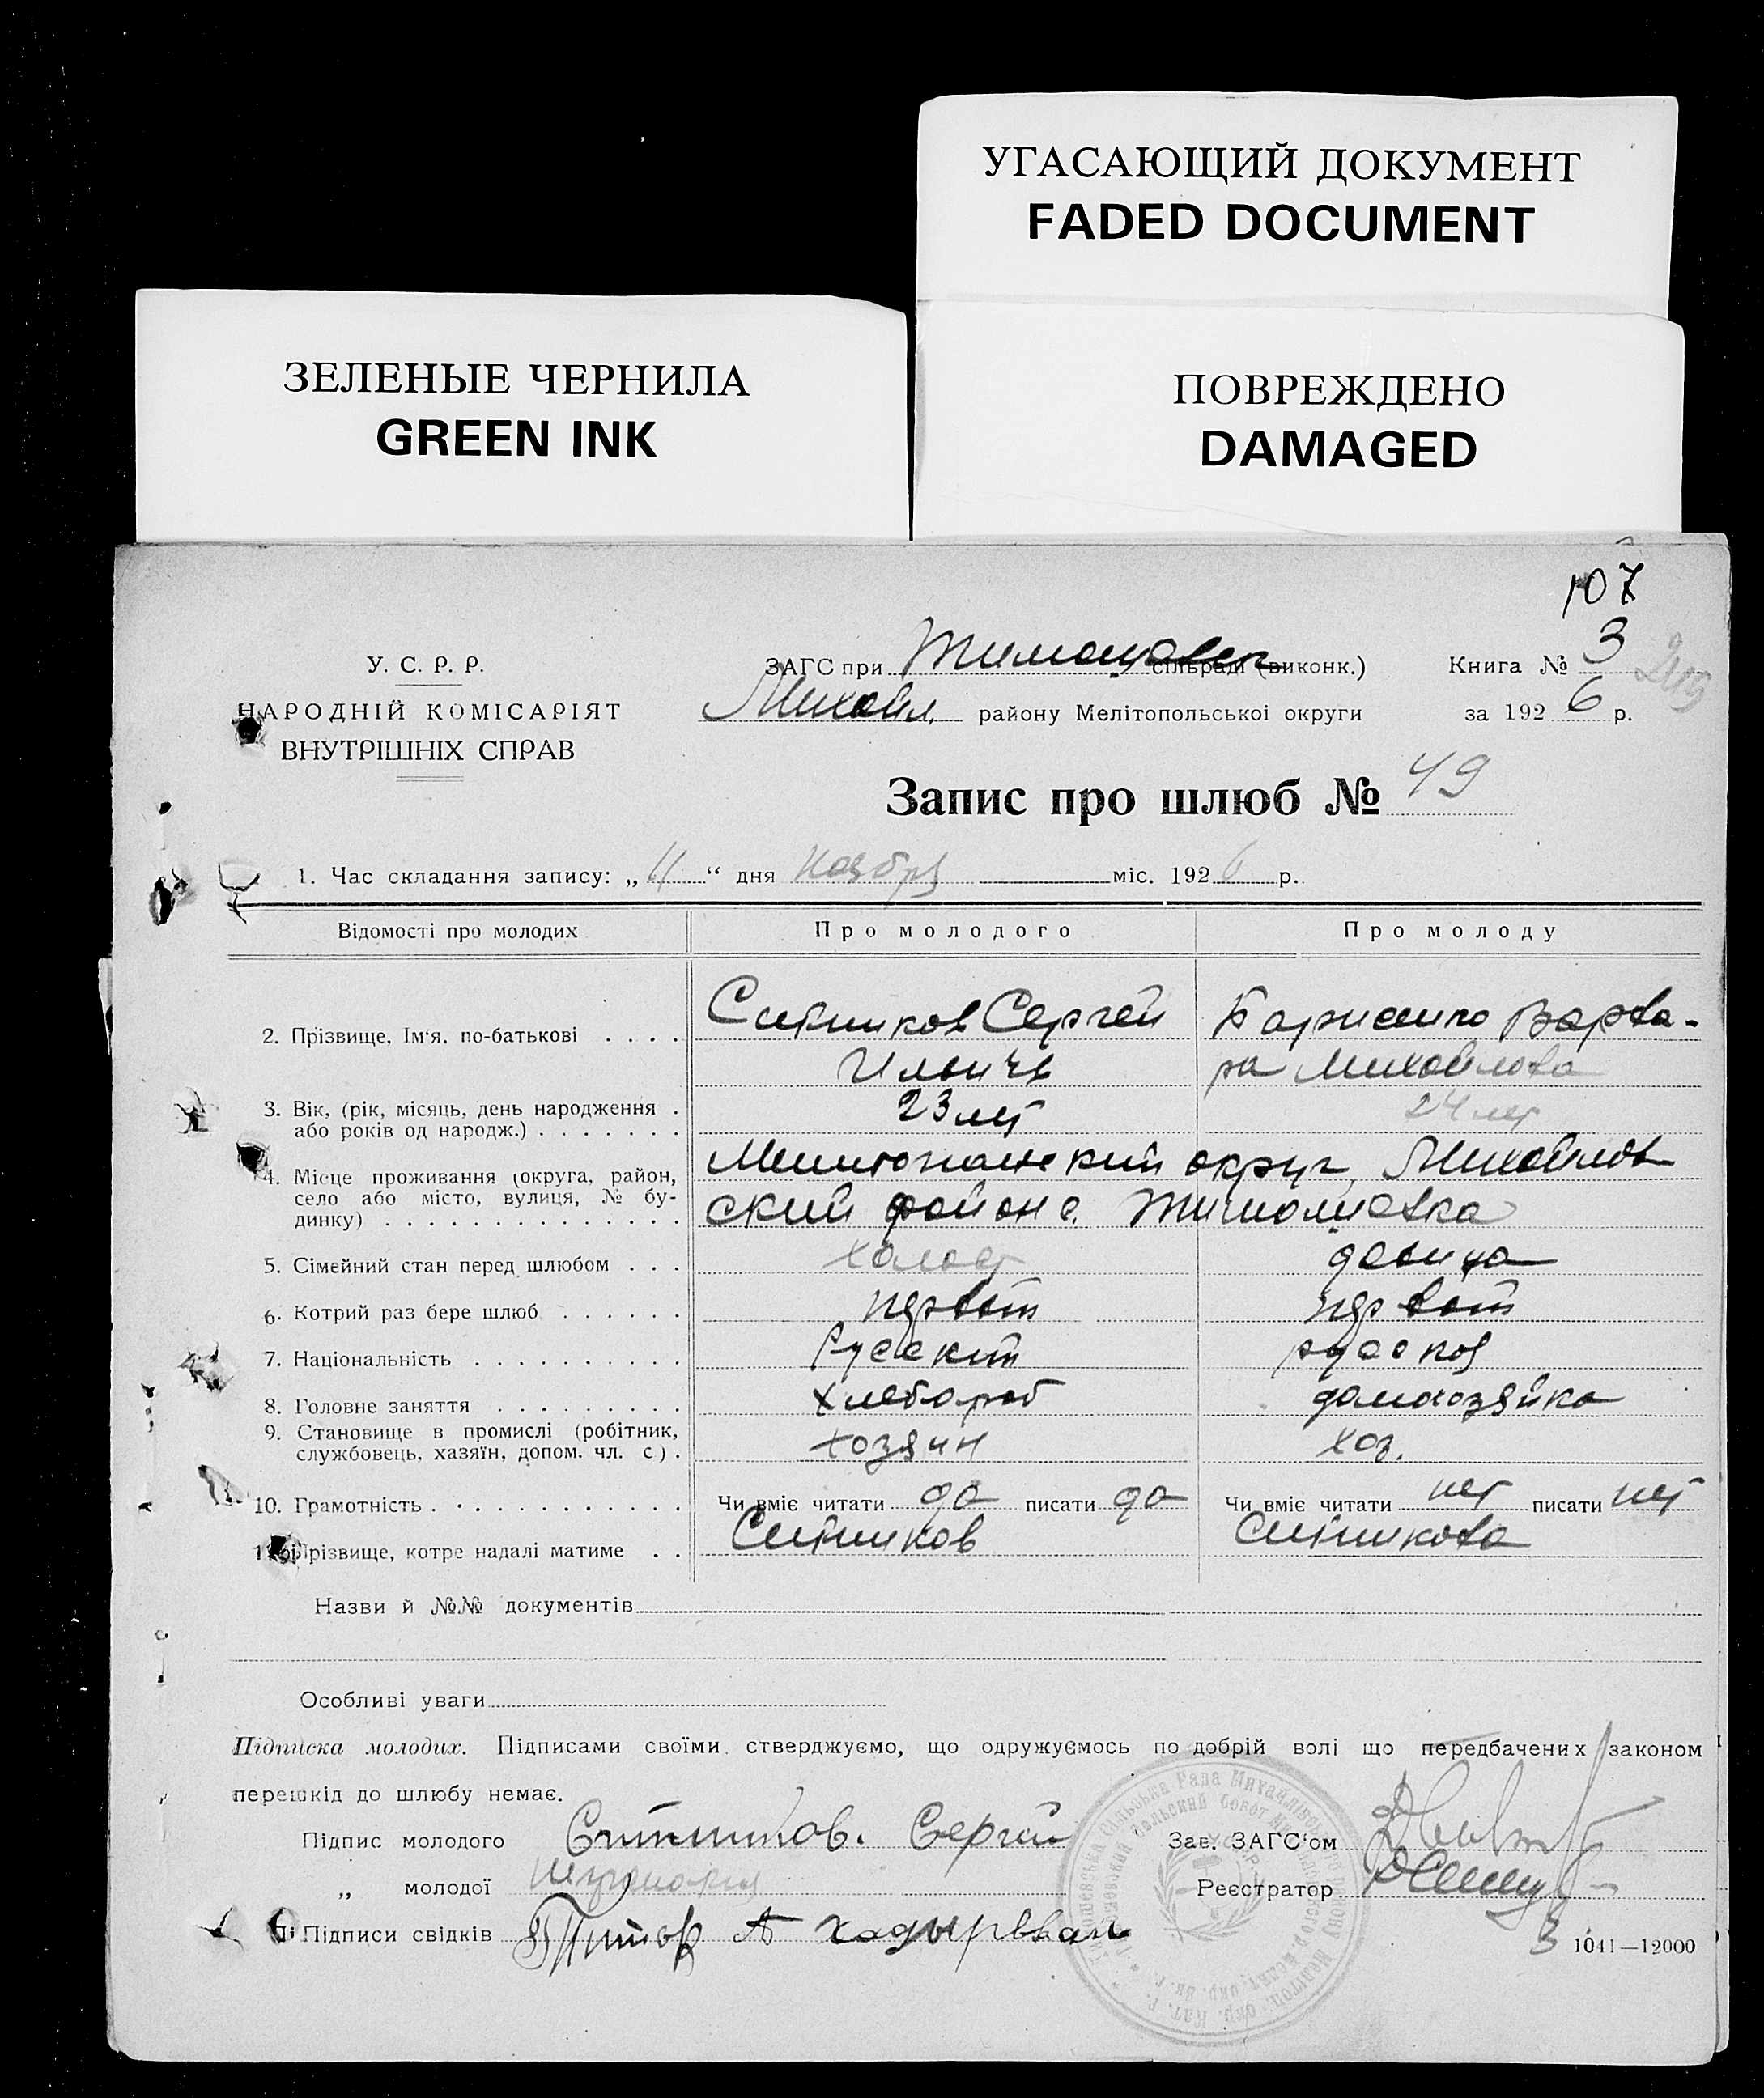 УГАСАЮЩИЙ ДОКУМЕНТ
FADED DOCUMENT
ЗЕЛЕНЫЕ ЧЕРНИЛА
GREEN INK
ПОВРЕЖДЕНО
DAMAGED
107
У. С. Р. Р.
НАРОДНІЙ КОМІСАРІЯТ
ВНУТРІШНІХ СПРАВ
ЗАГС при Тимошовск сільради (виконк.) Книга № 3
Михайл. району Мелітопольської округи за 192 6 р.
Запис про шлюб № 49
1. Час складання запису: „ 11 “ дня ноября міс. 192 6 р.
Відомості про молодих Про молодого Про молоду
2. Прізвище, Ім‘я, по-батькові . . . . Ситников Сергей Варва-
Ильичъ ра Михайлова
3. Вік, (рік, місяць, день народження . 23 лет 24 лет
або років од народж.) . . . . . . .
4. Місце проживання (округа, район, Мелитопольский округ, Михайлов
село або місто, вулиця, № бу- ский район с. Тимошовка
динку) . . . . . . . . . . . . . .
5. Сімейний стан перед шлюбом . . . холост девица
6. Котрий раз бере шлюб . . . . . . первый первый
7. Національність . . . . . . . . . . Русский русская
8. Головне заняття . . . . . . . . . хлебороб домхозяйка
9. Становище в промислі (робітник, хозяин хоз.
службовець, хазяїн, допом. чл. с.) .
10. Грамотність . . . . . . . . . . . . Чи вміє читати да писати да Чи вміє читати нет писати нет
11. Прізвище, котре надалі матиме . . Ситников Ситникова
Назви й №№ документів
Особливі уваги
Підписка молодих. Підписами своїми стверджуємо, що одружуємось по добрій волі що передбачених законом
перешкід до шлюбу немає.
Підпис молодого Ситников. Сергей Зав. ЗАГС‘ом
„ молодої неграмотна Реєстратор
Підписи свідків
3 1041—12000